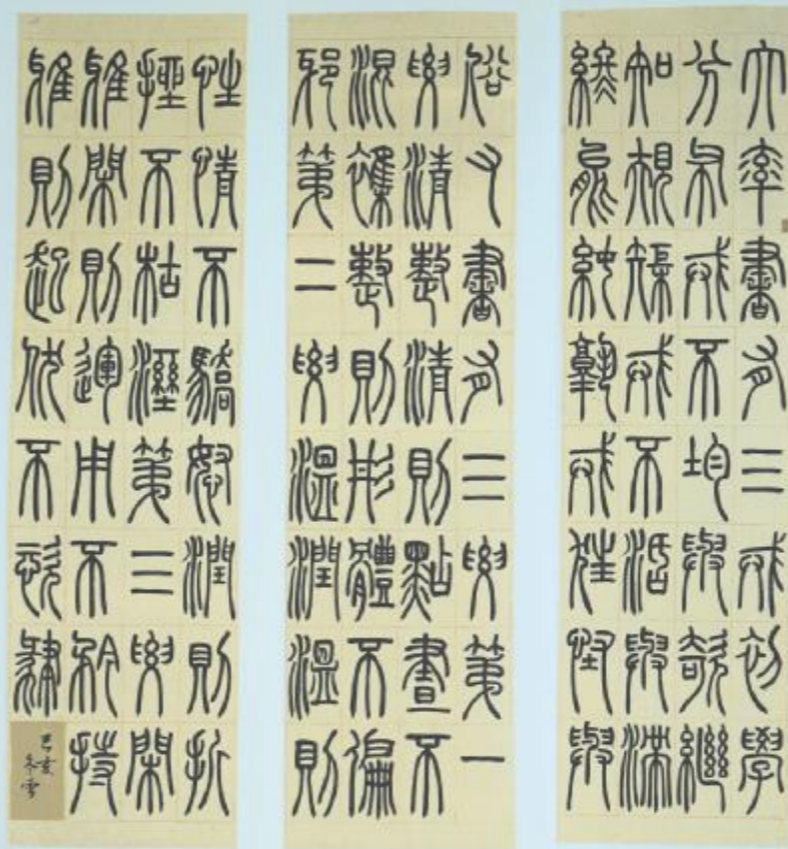 大率書有三戒初學
分布戒不均與欹繼
知規矩戒不活與滯
終能純孰戒狂怪與
俗又書有三要第一
要清整清則點畫不
混雜整則形體不偏
邪第二要溫潤溫則
性情不驕怒潤則折
挫不枯澀第三要閑
雅閑則運用不矜持
雅則起伏不恣肆
己亥
冬雪